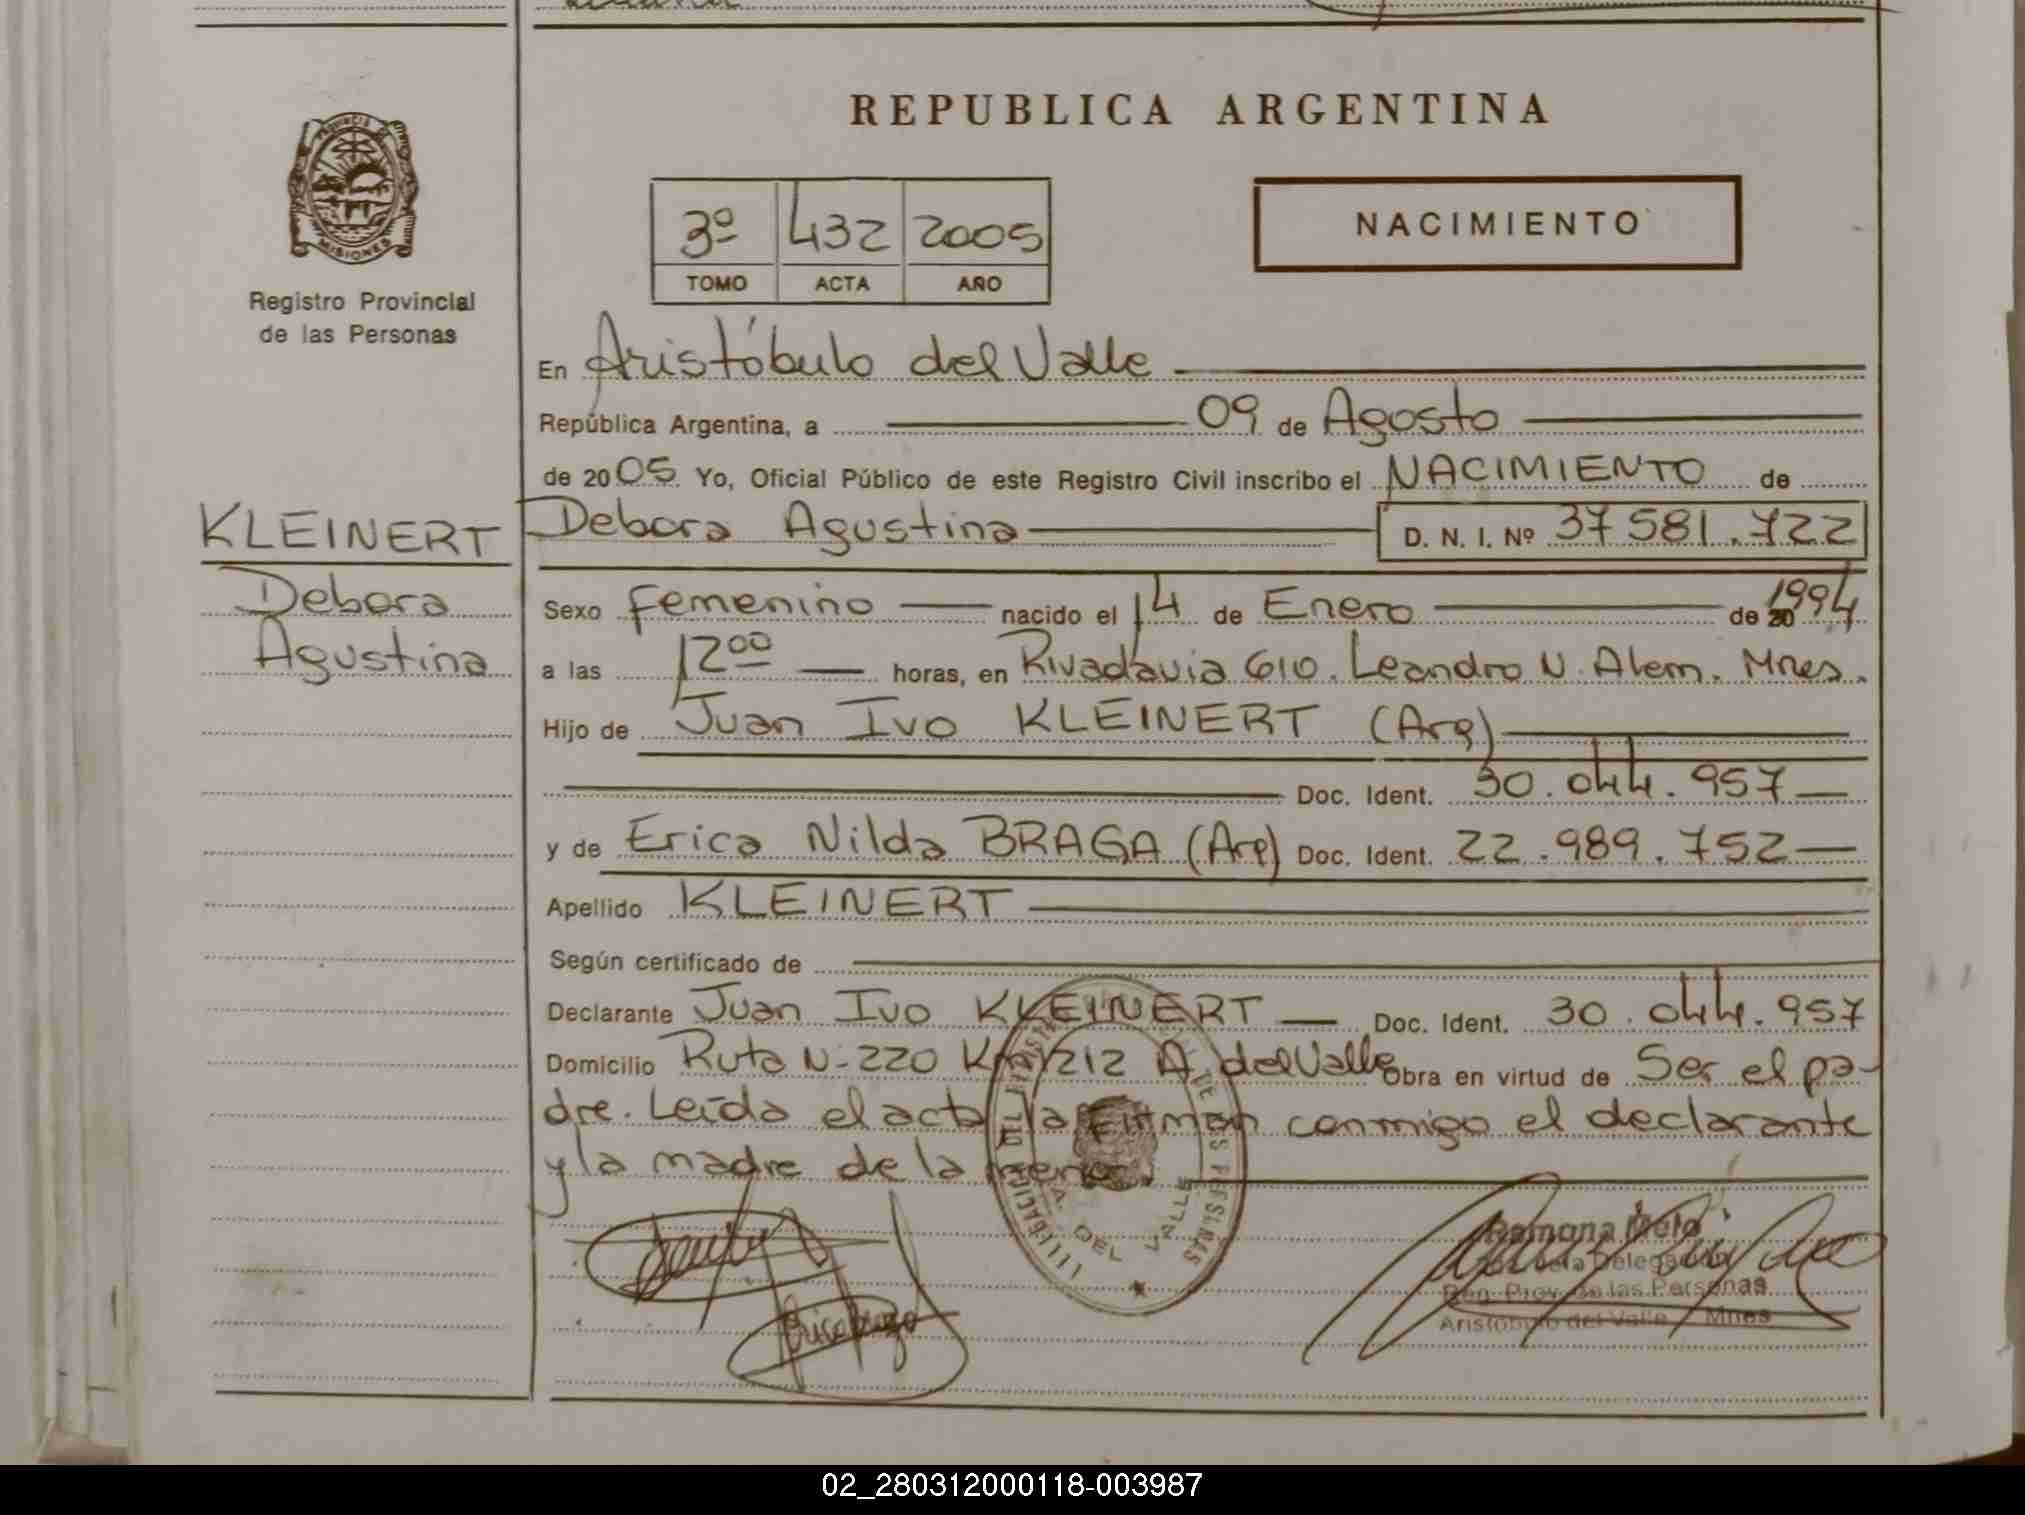 REPUBLICA ARGENTINA
PROVINCIA DE
MISIONES
Registro Provincial
de las Personas
3º 432 2005
TOMO ACTA AÑO
NACIMIENTO
En Aristóbulo del Valle
República Argentina, a 09 de Agosto
de 2005 Yo, Oficial Público de este Registro Civil inscribo el NACIMIENTO de
KLEINERT
Debora Agustina D. N. I. Nº 37 581.722
Debora
Agustina
Sexo femenino nacido el 14 de Enero de 20 1994
a las 12 00 horas, en Rivadavia 610. Leandro N. Alem. Mnes.
Hijo de Juan Ivo KLEINERT (Arg)
Doc. Ident. 30.044.957
y de Erica Nilda BRAGA (Arg) Doc. Ident. 22.989.752
Apellido KLEINERT
Según certificado de
Declarante Juan Ivo KLEINERT Doc. Ident. 30.044.957
Domicilio Ruta N-220 Km 1212 A. del Valle Obra en virtud de Ser el pa-
dre. Leída el acta la firman conmigo el declarante
y la madre de la menor.
DEL VALLE
Ramona Melo
Delegación
Reg. Prov. de las Personas
Aristóbulo del Valle Mnes
02_280312000118-003987